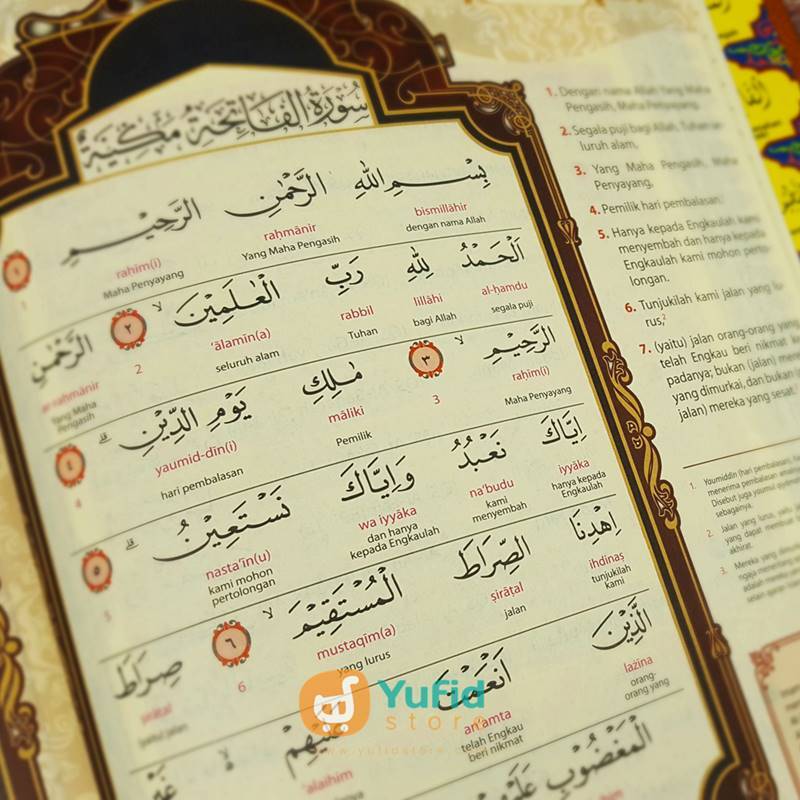 سُوْرَةُ الْفَاتِحَةِ مَكِّيَّةٌ
بِسْمِ اللّٰهِ الرَّحْمٰنِ الرَّحِيْمِ ١
bismillāhir raḥmānir raḥīm(i)
dengan nama Allah Yang Maha Pengasih Maha Penyayang
1
اَلْحَمْدُ لِلّٰهِ رَبِّ الْعٰلَمِيْنَۙ ٢ الرَّحْمٰنِ
al-ḥamdu lillāhi rabbil ‘ālamīn(a) 2 ar-raḥmānir
segala puji bagi Allah Tuhan seluruh alam Yang Maha Pengasih
الرَّحِيْمِۙ ٣ مٰلِكِ يَوْمِ الدِّيْنِۗ ٤
raḥīm(i) 3 māliki yaumid-dīn(i) 4
Maha Penyayang Pemilik hari pembalasan
اِيَّاكَ نَعْبُدُ وَاِيَّاكَ نَسْتَعِيْنُۗ ٥
iyyāka na‘budu wa iyyāka nasta‘īn(u) 5
hanya kepada Engkaulah kami menyembah dan hanya kepada Engkaulah kami mohon pertolongan
اِهْدِنَا الصِّرَاطَ الْمُسْتَقِيْمَۙ ٦ صِرَاطَ
ihdinaṣ ṣirāṭal mustaqīm(a) 6 ṣirāṭal
tunjukilah kami jalan yang lurus yaitu jalan
الَّذِيْنَ اَنْعَمْتَ
lażīna an‘amta ‘alaihim
orang-orang yang telah Engkau beri nikmat
الْمَغْضُوْبِ
1. Dengan nama Allah Yang Maha
Pengasih, Maha Penyayang.
2. Segala puji bagi Allah, Tuhan
luruh alam,
3. Yang Maha Pengasih, Maha
Penyayang,
4. Pemilik hari pembalasan.
5. Hanya kepada Engkaulah kami
menyembah dan hanya kepada
Engkaulah kami mohon perto-
longan.
6. Tunjukilah kami jalan yang lu-
rus,2
7. (yaitu) jalan orang-orang yang
telah Engkau beri nikmat
padanya; bukan (jalan) mereka
yang dimurkai, dan bukan
jalan) mereka yang sesat.
1. Youmiddīn (hari pembalasan),
menerima pembalasan
Disebut juga
sebagainya.
2. Jalan yang lurus,
yang dapat
akhirat.
3. Mereka yang
Yufid
store